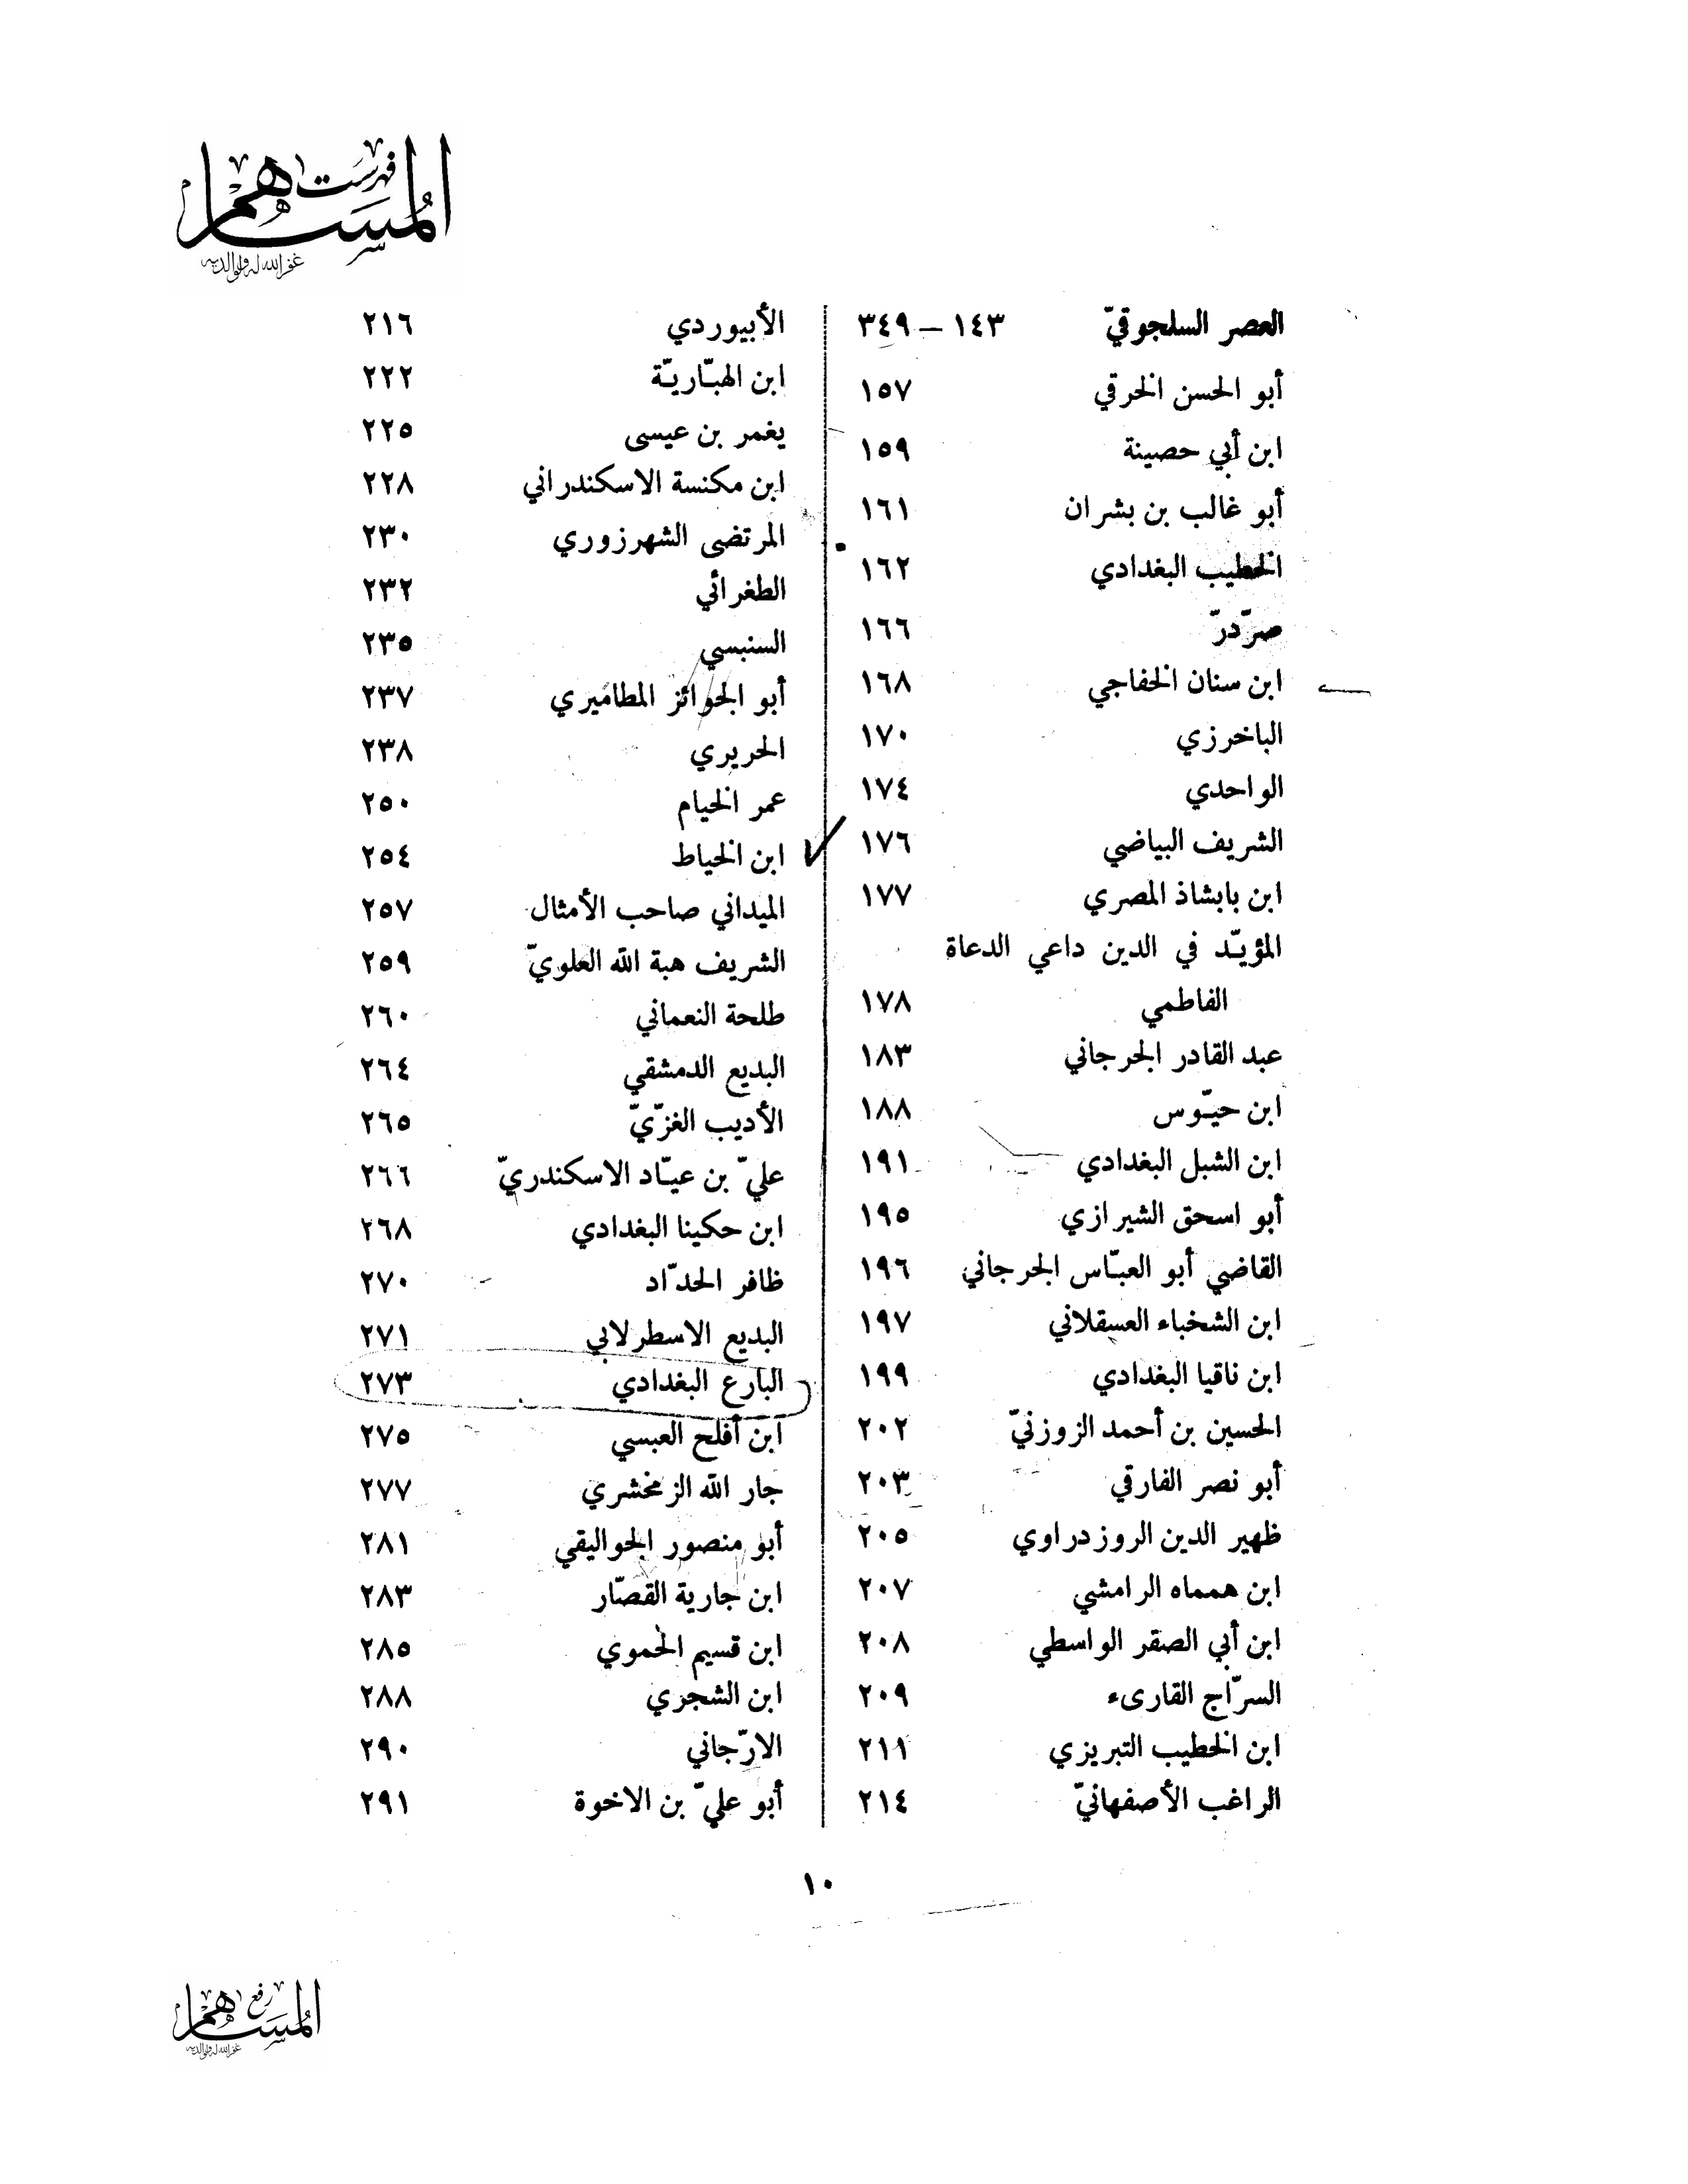 فهرست
المساهم
غفر الله له ولوالديه
العصر السلجوقيّ ١٤٣ – ٣٤٩
أبو الحسن الخرقي ١٥٧
ابن أبي حصينة ١٥٩
أبو غالب بن بشران ١٦١
الخطيب البغدادي ١٦٢
صرّدرّ ١٦٦
ابن سنان الخفاجي ١٦٨
الباخرزي ١٧٠
الواحدي ١٧٤
الشريف البياضي ١٧٦
ابن بابشاذ المصري ١٧٧
المؤيّد في الدين داعي الدعاة
الفاطمي ١٧٨
عبد القادر الجرجاني ١٨٣
ابن حيّوس ١٨٨
ابن الشبل البغدادي ١٩١
أبو اسحق الشيرازي ١٩٥
القاضي أبو العبّاس الجرجاني ١٩٦
ابن الشخباء العسقلاني ١٩٧
ابن ناقيا البغدادي ١٩٩
الحسين بن أحمد الزوزنيّ ٢٠٢
أبو نصر الفارقي ٢٠٣
ظهير الدين الروزدراوي ٢٠٥
ابن همماه الرامشي ٢٠٧
ابن أبي الصقر الواسطي ٢٠٨
السرّاج القارىء ٢٠٩
ابن الخطيب التبريزي ٢١١
الراغب الأصفهانيّ ٢١٤
الأبيوردي ٢١٦
ابن الهبّاريّة ٢٢٢
يغمر بن عيسى ٢٢٥
ابن مكنسة الاسكندراني ٢٢٨
المرتضى الشهرزوري ٢٣٠
الطغرائي ٢٣٢
السنبسي ٢٣٥
أبو الجوائز المطاميري ٢٣٧
الحريري ٢٣٨
عمر الخيام ٢٥٠
ابن الخياط ٢٥٤
الميداني صاحب الأمثال ٢٥٧
الشريف هبة الله العلويّ ٢٥٩
طلحة النعماني ٢٦٠
البديع الدمشقي ٢٦٤
الأديب الغزّيّ ٢٦٥
عليّ بن عيّاد الاسكندريّ ٢٦٦
ابن حكينا البغدادي ٢٦٨
ظافر الحدّاد ٢٧٠
البديع الاسطرلابي ٢٧١
البارع البغدادي ٢٧٣
ابن أفلح العبسي ٢٧٥
جار الله الزمخشري ٢٧٧
أبو منصور الجواليقي ٢٨١
ابن جارية القصّار ٢٨٣
ابن قسيم الحموي ٢٨٥
ابن الشجري ٢٨٨
الارّجاني ٢٩٠
أبو عليّ بن الاخوة ٢٩١
١٠
رفع
المساهم
غفر الله له ولوالديه